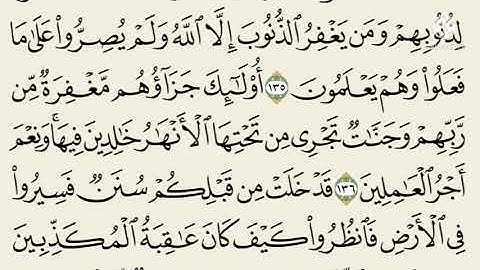 لِذُنُوبِهِمْ وَمَن يَغْفِرُ ٱلذُّنُوبَ إِلَّا ٱللَّهُ وَلَمْ يُصِرُّوا۟ عَلَىٰ مَا
فَعَلُوا۟ وَهُمْ يَعْلَمُونَ ١٣٥ أُو۟لَـٰٓئِكَ جَزَآؤُهُم مَّغْفِرَةٌ مِّن
رَّبِّهِمْ وَجَنَّـٰتٌ تَجْرِى مِن تَحْتِهَا ٱلْأَنْهَـٰرُ خَـٰلِدِينَ فِيهَا ۚ وَنِعْمَ
أَجْرُ ٱلْعَـٰمِلِينَ ١٣٦ قَدْ خَلَتْ مِن قَبْلِكُمْ سُنَنٌ فَسِيرُوا۟
فِى ٱلْأَرْضِ فَٱنظُرُوا۟ كَيْفَ كَانَ عَـٰقِبَةُ ٱلْمُكَذِّبِينَ